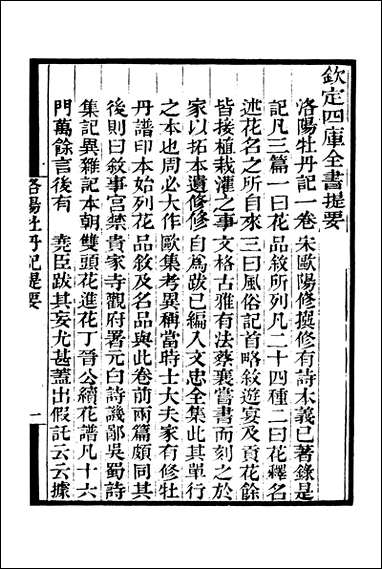 欽定四庫全書提要
洛陽牡丹記一卷宋歐陽修撰修有詩本義已著錄是
記凡三篇一曰花品敘所列凡二十四種二曰花釋名
述花名之所自來三曰風俗記首略敘遊宴及貢花餘
皆接植栽灌之事文格古雅有法蔡襄嘗書而刻之於
家以拓本遺修修自為跋已編入文忠全集此其單行
之本也周必大作歐集考異稱當時士大夫家有修牡
丹譜印本始列花品敘及名品與此卷前兩篇頗同其
後則曰敘事宮禁貴家寺觀府署元白詩譏鄙吳蜀詩
集記異雜記本朝雙頭花進花丁晉公續花譜凡十六
門萬餘言後有　堯臣跋其妄尤甚蓋出假託云云據
洛陽牡丹記提要
一